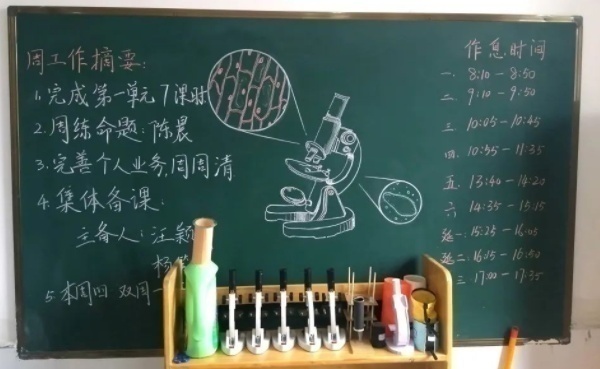 周工作摘要:
1.完成第一单元7课时
2.周练命题:陈晨
3.完善个人业务,周周清
4.集体备课:
主备人:汪颖
杨
5.本周四 双周一
作息时间
一. 8:10-8:50
二. 9:10-9:50
三. 10:05-10:45
四. 10:55-11:35
五. 13:40-14:20
六 14:35-15:15
延一:15:25-16:05
延二:16:15-16:50
三 17:00-17:35